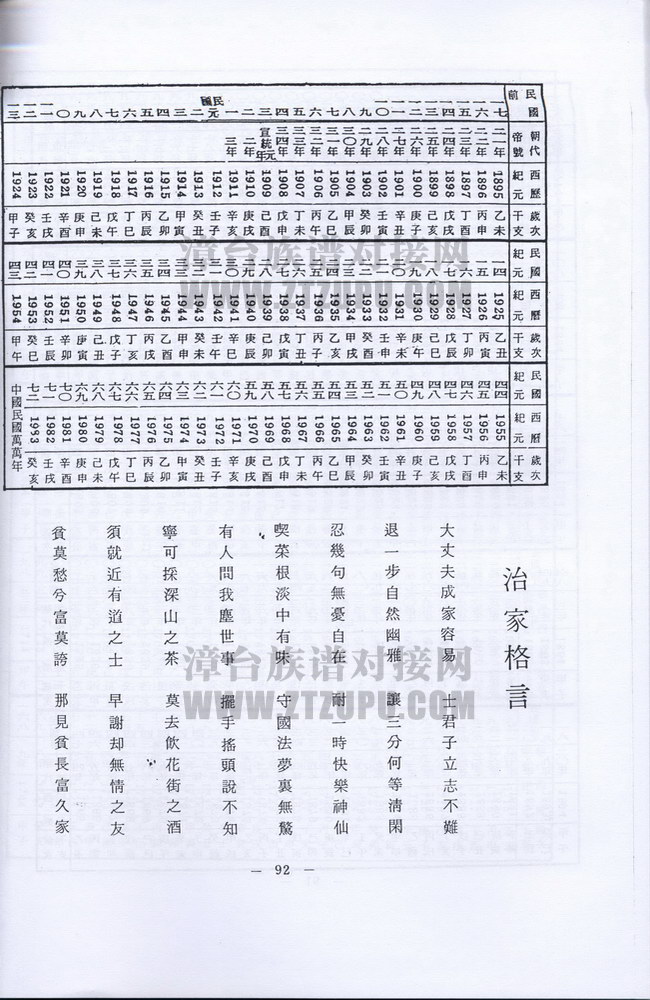 民國前 朝代帝號 西歷紀元 歲次干支
一七 二一年 1895 乙未
一六 二二年 1896 丙申
一五 二三年 1897 丁酉
一四 二四年 1898 戊戌
一三 二五年 1899 己亥
一二 二六年 1900 庚子
一一 二七年 1901 辛丑
一〇 二八年 1902 壬寅
九 二九年 1903 癸卯
八 三〇年 1904 甲辰
七 三一年 1905 乙巳
六 三二年 1906 丙午
五 三三年 1907 丁未
四 三四年 1908 戊申
三 宣統元年 1909 己酉
二 二年 1910 庚戌
一 三年 1911 辛亥
民國元 1912 壬子
二 1913 癸丑
三 1914 甲寅
四 1915 乙卯
五 1916 丙辰
六 1917 丁巳
七 1918 戊午
八 1919 己未
九 1920 庚申
一〇 1921 辛酉
一一 1922 壬戌
一二 1923 癸亥
一三 1924 甲子
民國紀元 西曆紀元 歲次干支
一四 1925 乙丑
一五 1926 丙寅
一六 1927 丁卯
一七 1928 戊辰
一八 1929 己巳
一九 1930 庚午
二〇 1931 辛未
二一 1932 壬申
二二 1933 癸酉
二三 1934 甲戌
二四 1935 乙亥
二五 1936 丙子
二六 1937 丁丑
二七 1938 戊寅
二八 1939 己卯
二九 1940 庚辰
三〇 1941 辛巳
三一 1942 壬午
三二 1943 癸未
三三 1944 甲申
三四 1945 乙酉
三五 1946 丙戌
三六 1947 丁亥
三七 1948 戊子
三八 1949 己丑
三九 1950 庚寅
四〇 1951 辛卯
四一 1952 壬辰
四二 1953 癸巳
四三 1954 甲午
民國紀元 西曆紀元 歲次干支
四四 1955 乙未
四五 1956 丙申
四六 1957 丁酉
四七 1958 戊戌
四八 1959 己亥
四九 1960 庚子
五〇 1961 辛丑
五一 1962 壬寅
五二 1963 癸卯
五三 1964 甲辰
五四 1965 乙巳
五五 1966 丙午
五六 1967 丁未
五七 1968 戊申
五八 1969 己酉
五九 1970 庚戌
六〇 1971 辛亥
六一 1972 壬子
六二 1973 癸丑
六三 1974 甲寅
六四 1975 乙卯
六五 1976 丙辰
六六 1977 丁巳
六七 1978 戊午
六八 1979 己未
六九 1980 庚申
七〇 1981 辛酉
七一 1982 壬戌
七二 1983 癸亥
中國民國萬萬年
治家格言
大丈夫成家容易 士君子立志不難
退一步自然幽雅 讓三分何等清閑
忍幾句無憂自在 耐一時快樂神仙
喫菜根淡中有味 守國法夢裏無驚
有人問我塵世事 擺手搖頭說不知
寧可採深山之茶 莫去飲花街之酒
須就近有道之士 早謝却無情之友
貧莫愁兮富莫誇 那見貧長富久家
— 92 —
漳台族谱对接网
WWW.ZTZUPU.COM
漳台族谱对接网
WWW.ZTZUPU.COM